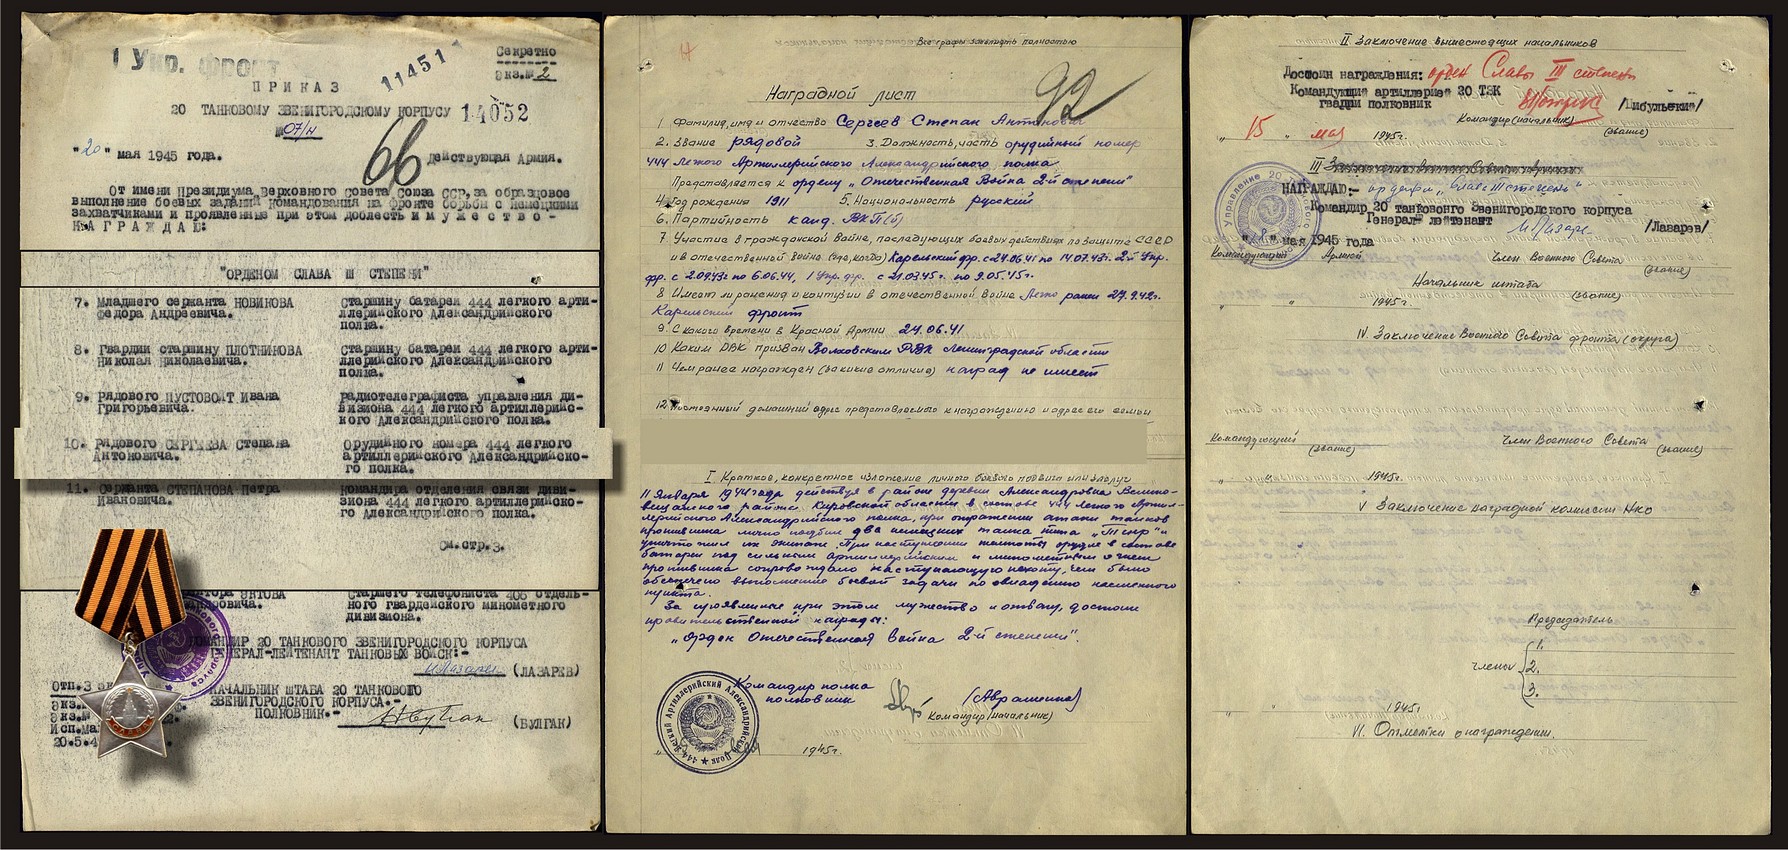 1 Укр. фронт
11451
Секретно
Экз.№ 2
ПРИКАЗ
20 ТАНКОВОМУ ЗВЕНИГОРОДСКОМУ КОРПУСУ
14052
№ 07/н
66
"20" мая 1945 года.
Действующая Армия.
От имени Президиума Верховного Совета Союза ССР, за образцовое
выполнение боевых заданий командования на фронте борьбы с немецкими
захватчиками и проявленные при этом доблесть и мужество -
НАГРАЖДАЮ:
"ОРДЕНОМ СЛАВА III СТЕПЕНИ"
7. Младшего сержанта НОВИКОВА
Федора Андреевича.
Старшину батареи 444 легкого арти-
ллерийского Александрийского
полка.
8. Гвардии старшину ПЛОТНИКОВА
Николая Николаевича.
Старшину батареи 444 легкого арти-
ллерийского Александрийского
полка.
9. Рядового ПУСТОВОЙТ Ивана
Григорьевича.
радиотелеграфиста управления ди-
визиона 444 легкого артиллерийс-
кого Александрийского полка.
10. Рядового СЕРГЕЕВА Степана
Антоновича.
Орудийного номера 444 легкого
артиллерийского Александрийско-
го полка.
11. Сержанта СТЕПАНОВА Петра
Ивановича.
Командира отделения связи диви-
зиона 444 легкого артиллерийско-
го Александрийского полка.
см.стр.3.
Старшего телефониста 406 отдель-
ного гвардейского минометного
дивизиона.
КОМАНДИР 20 ТАНКОВОГО ЗВЕНИГОРОДСКОГО КОРПУСА
ГЕНЕРАЛ-ЛЕЙТЕНАНТ ТАНКОВЫХ ВОЙСК:-
(ЛАЗАРЕВ)
НАЧАЛЬНИК ШТАБА 20 ТАНКОВОГО
ЗВЕНИГОРОДСКОГО КОРПУСА.-
ПОЛКОВНИК.-
(БУЛГАК)
Отп.3
Экз.
Экз.№
20.5.4
Все графы заполнять полностью
92
Наградной лист
1 Фамилия, имя и отчество Сергеев Степан Антонович
2. Звание рядовой 3. Должность, часть орудийный номер
444 Легкого Артиллерийского Александрийского полка
Представляется к ордену "Отечественная Война 2й степени"
4. Год рождения 1911 5. Национальность русский
6. Партийность канд. ВКП(б)
7 Участие в гражданской войне, последующих боевых действиях по защите СССР
и в отечественной войне (где, когда) Карельский фр. с 24.06.41 по 14.07.43г. 2й Укр.
фр. с 2.09.43г по 6.06.44, 1 Укр. фр. с 21.03.45г. по 9.05.45г.
8 Имеет ли ранения и контузии в отечественной войне Легко ранен 27.9.42г.
Карельский фронт
9. С какого времени в Красной Армии 24.06.41
10 Каким РВК призван Волховским РВК Ленинградской области
11 Чем ранее награжден (за какие отличия) наград не имеет
12. Постоянный домашний адрес представляемого к награждению и адрес его семьи
I. Краткое, конкретное изложение личного боевого подвига или заслуг
11 Января 1944 года действуя в районе деревни Александровка Велико-
вещанного района, Кировской области в составе 444 легкого Артил-
лерийского Александрийского полка, при отражении атаки танков
противника лично подбил два немецких танка типа "Тигр" и
уничтожил их экипаж. При наступлении пехоты орудие в составе
батареи под сильным артиллерийским и минометным огнем
противника сопровождало наступающую пехоту, чем было
обеспечено выполнение боевой задачи по овладению населенного
пункта.
За проявленные при этом мужество и отвагу, достоин
правительственной награды:
"Орден Отечественная Война 2-й степени".
Командир полка
полковник
(Авраменко)
Командир (начальник)
444 Легкий Артиллерийский Александрийский Полк
1945г.
II. Заключение вышестоящих начальников
Достоин награждения: орден Славы III степени
Командующий артиллерией 20 ТЗК
гвардии полковник
/Цибульский/
Командир (начальник)
(звание)
"15" мая 1945г.
III Заключение Военного Совета Армии
НАГРАЖДАЮ:- орденом "Слава III степень"
Командир 20 танкового Звенигородского корпуса
Генерал-лейтенант
/Лазарев/
"18" мая 1945 года
Командующий Армией
Член Военного Совета
(звание)
Начальник штаба
(звание)
" " 1945г.
IV. Заключение Военного Совета фронта (округа)
Командующий
(звание)
Член Военного Совета
(звание)
" " 1945г.
V Заключение наградной комиссии НКО
Председатель
Члены
1.
2.
3.
1945г
VI. Отметки о награждении.